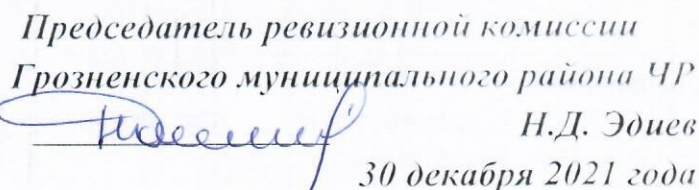 Председатель ревизионной комиссии
Грозненского муниципального района ЧР
Н.Д. Эдиев
30 декабря 2021 года